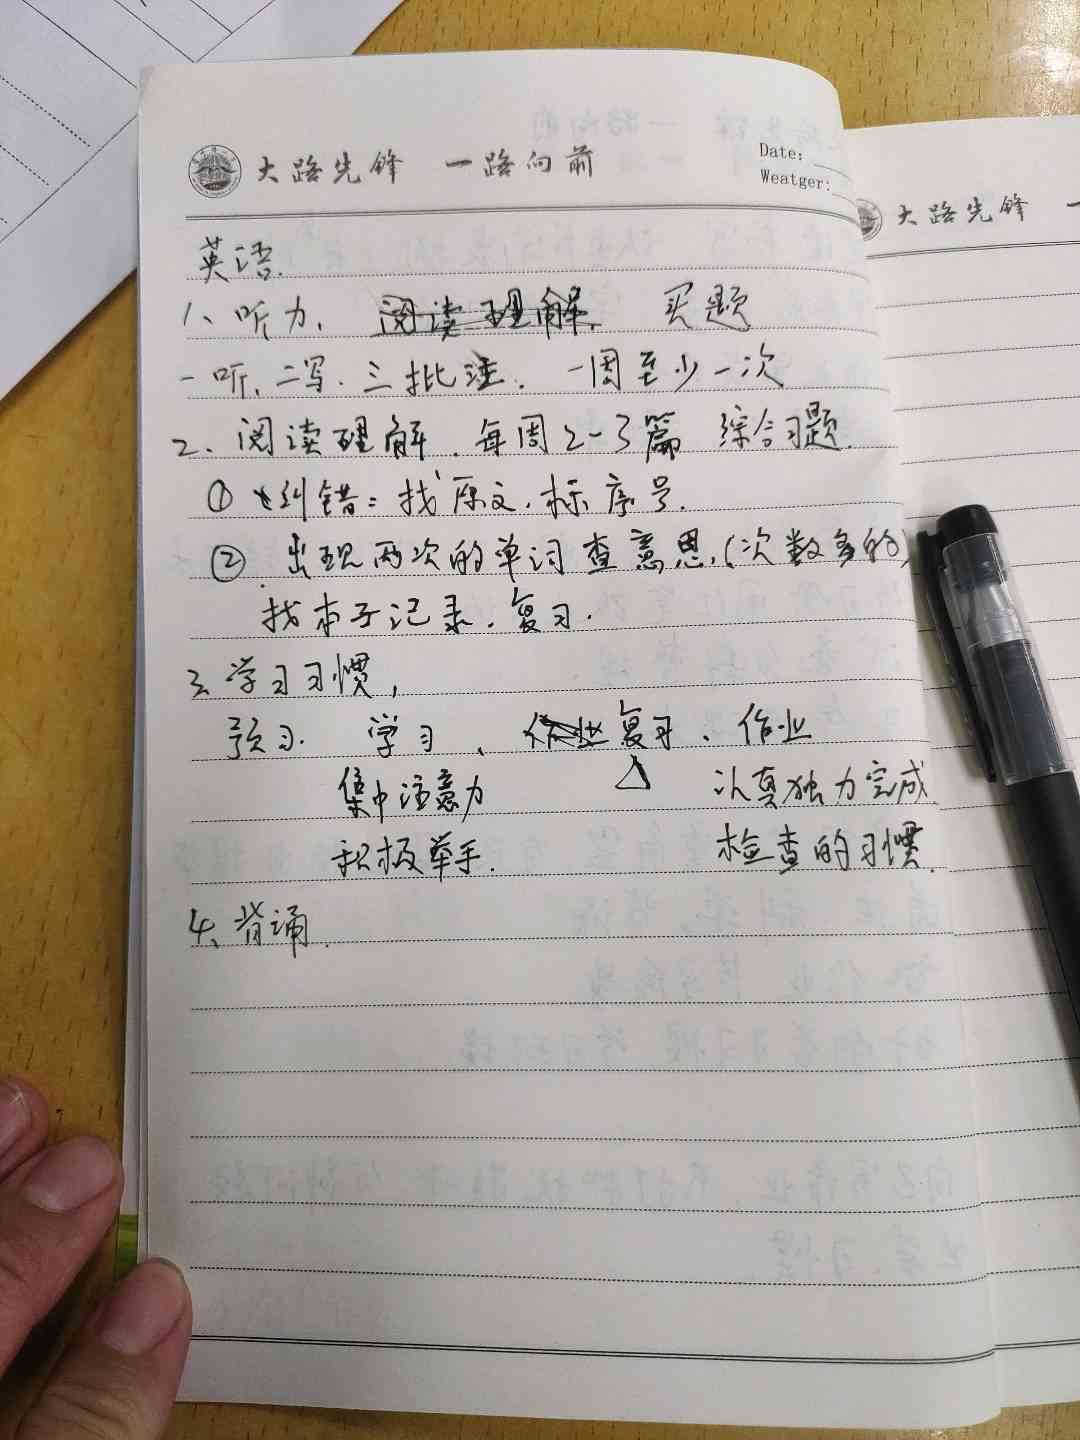 大路先锋 一路向前
Date:
Weatger:
英语.
1、听力, 阅读理解, 买题
一听、二写、三批注. 一周至少一次
2、阅读理解、每周2-3篇 综合习题.
① 纠错：找原文、标序号.
② 出现两次的单词查意思,(次数多的)
找本子记录、复习.
3、学习习惯,
预习. 学习、作业复习、作业
△
集中注意力 认真独力完成.
积极举手. 检查的习惯.
4、背诵.
大路先锋 一